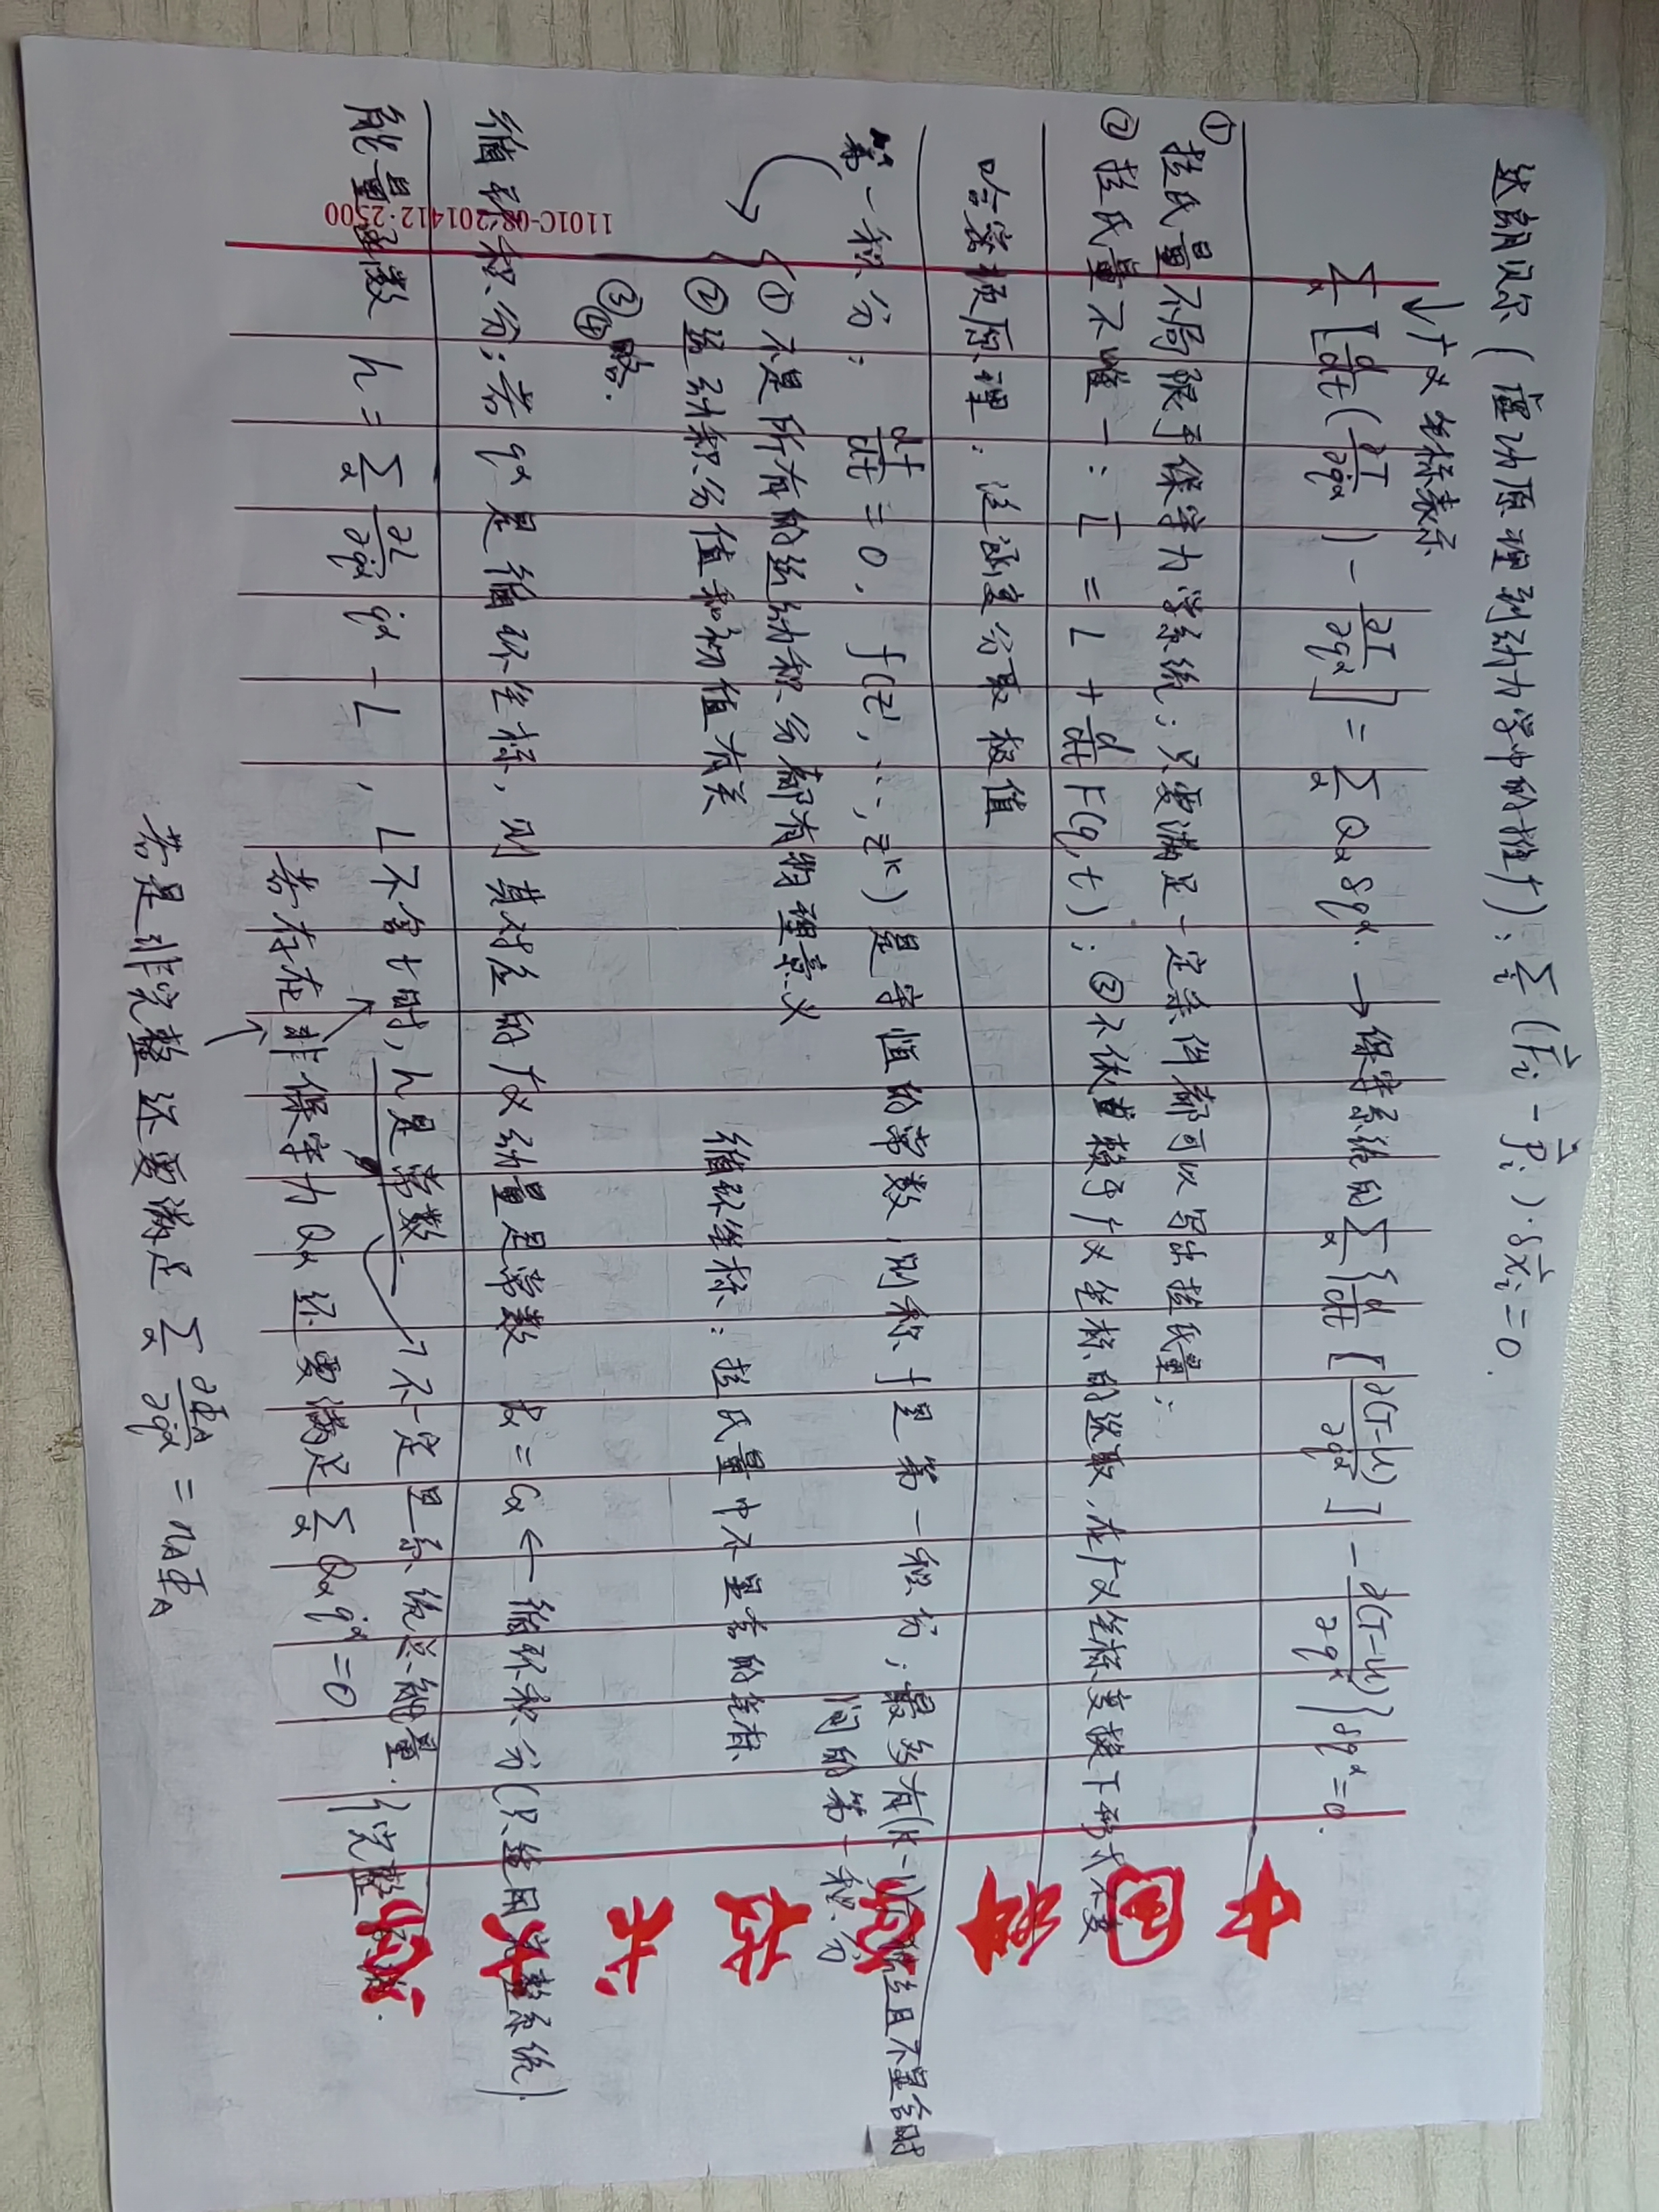 达朗贝尔(虚功原理到动力学中的推广): Σᵢ (F⃗ᵢ - ṗ⃗ᵢ)·δx⃗ᵢ = 0.
↓广义坐标表示
Σα [d/dt(∂T/∂q̇α) - ∂T/∂qα] = Σα Qα δqα. → 保守系统的 Σα {d/dt [∂(T-u)/∂q̇α] - ∂(T-u)/∂qα} δqα = 0.
① 拉氏量不局限于保守力学系统; 只要满足一定条件都可以写出拉氏量;
② 拉氏量不唯一: L̄ = L + d/dt F(q,t); ③不依赖于广义坐标的选取, 在广义坐标变换下形式不变
哈密顿原理: 泛函变分取极值
第一积分: df/dt = 0. f(z¹, ..., zᴷ) 是守恒的常数, 则称 f 是第一积分; 最多有(K-1)个独立且不显含时
间的第一积分
① 不是所有的运动积分都有物理意义
② 运动积分值和初值有关
循环坐标: 拉氏量中不显含的坐标
③ ④ 略.
循环积分: 若 qα 是循环坐标, 则其对应的广义动量是常数 Pα = Cα ← 循环积分(只适用完整系统).
能量函数 h = Σα ∂L/∂q̇α q̇α - L, L不含t时, h是常数 → 不一定是系统总能量. {完整
若存在非保守力 Qα 还要满足 Σα Qα q̇α = 0
若是非完整还要满足 Σα ∂ΦA/∂q̇α = nAΦA
1101C-08·201412·2500
中国